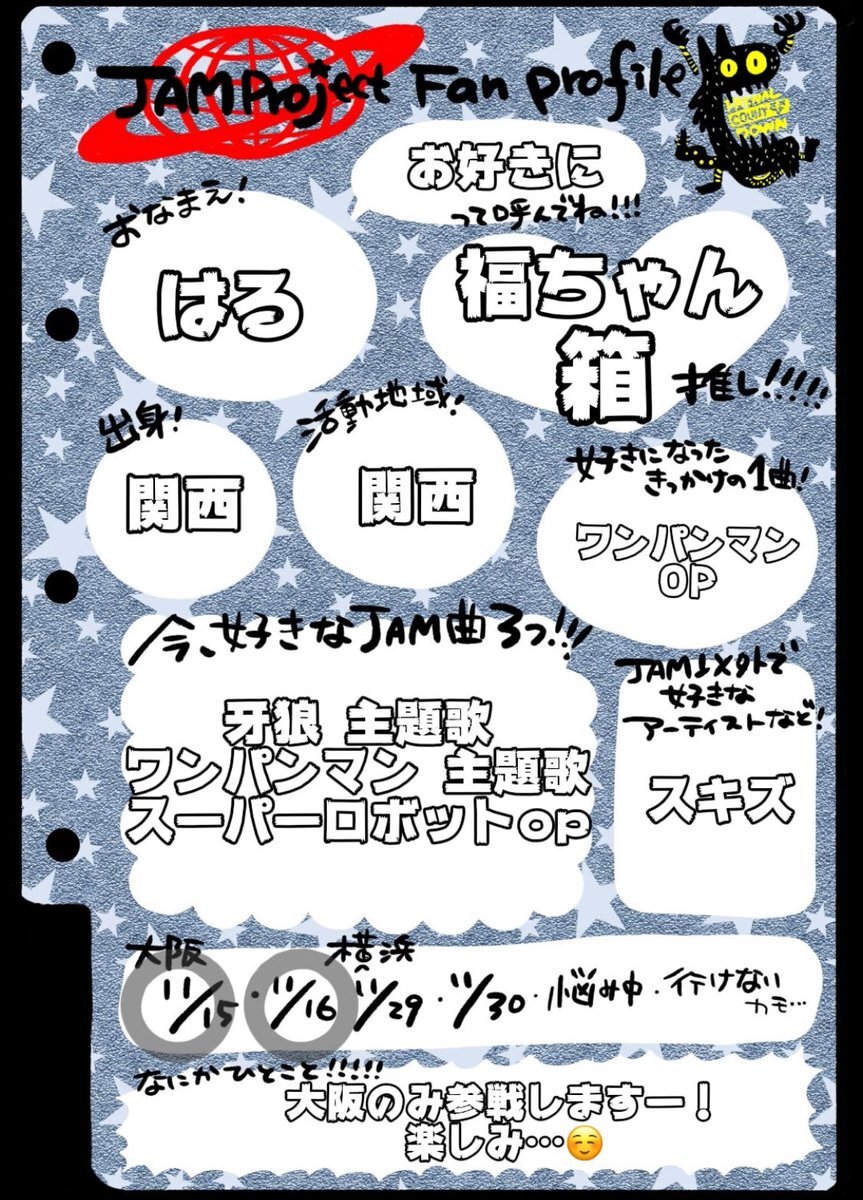 JAM Project Fan profile
FINAL
COUNT
DOWN
おなまえ!
はる
お好きに
って呼んでね!!!
福ちゃん
箱
推し!!!!!
出身!
関西
活動地域!
関西
好きになった
きっかけの1曲!
ワンパンマン
OP
今、好きなJAM曲3つ!!!
牙狼 主題歌
ワンパンマン 主題歌
スーパーロボットop
JAM以外で
好きな
アーティストなど!
スキズ
大阪 横浜
11/15・11/16 11/29・11/30・悩み中・行けない
カモ…
なにかひとこと!!!!!
大阪のみ参戦しますー!
楽しみ…☺️